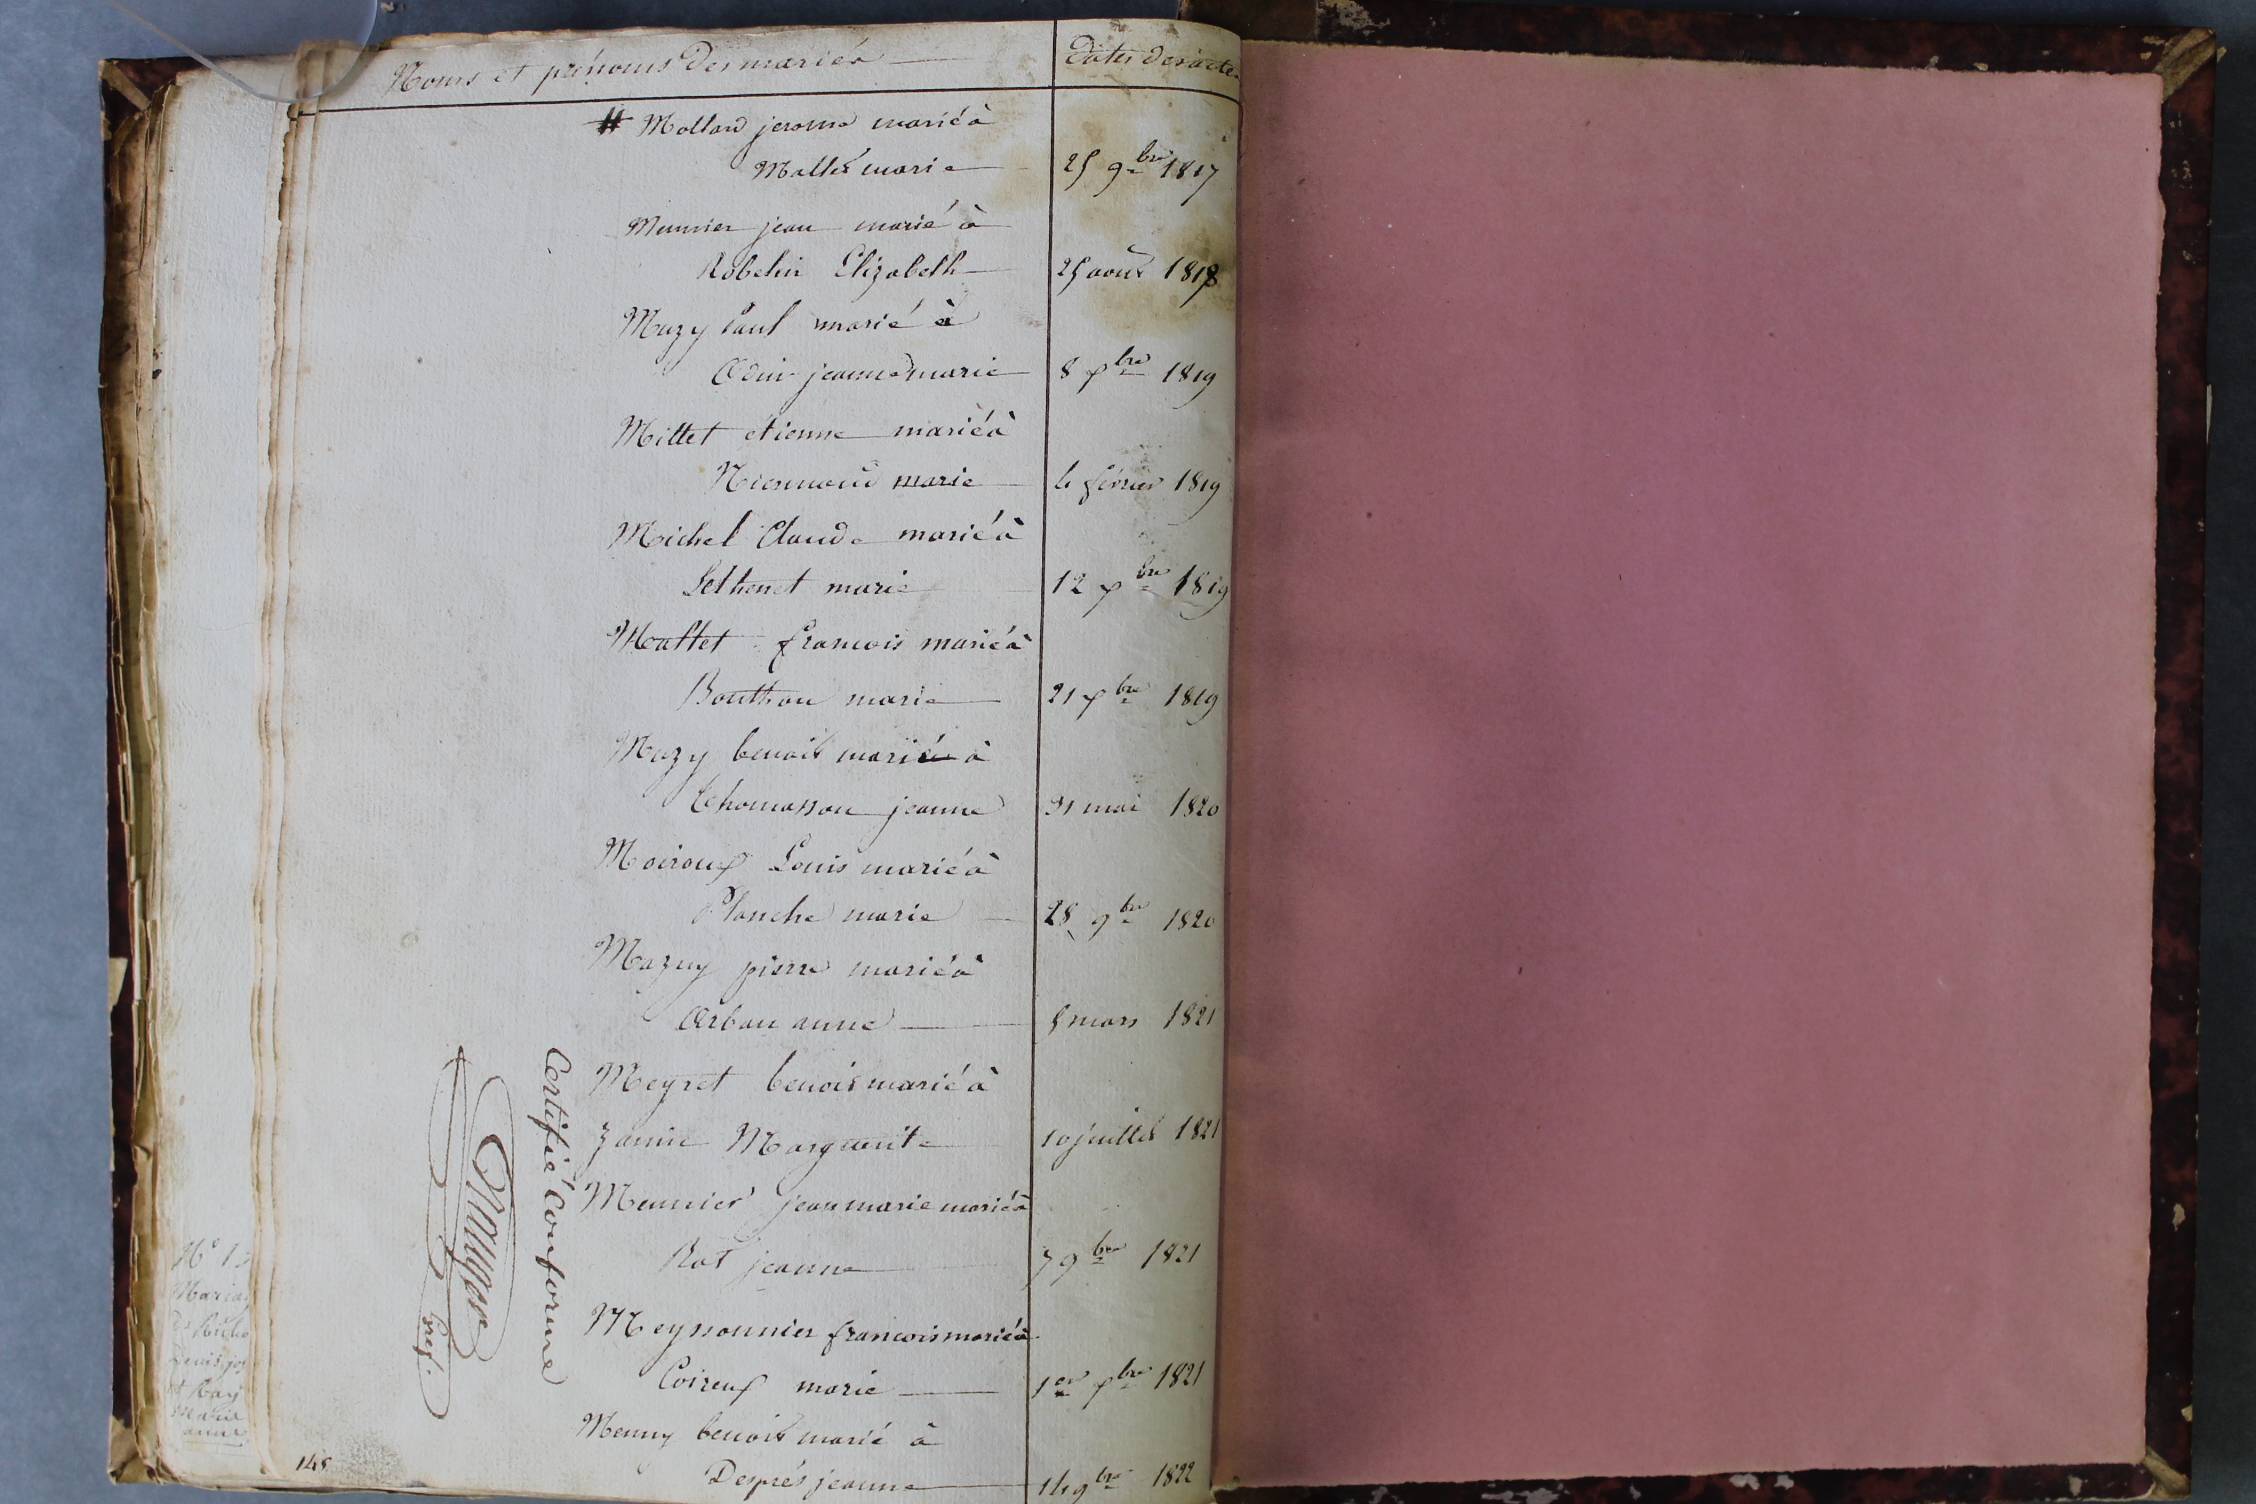 Noms et prénoms des mariés Dates des actes
Mollard jerome marié à
Mallet marie 25 9bre 1817
Munier jean marié à
Robelin Elizabeth 25 aout 1818
Muzy Paul marié à
Odin jeanne marie 8 xbre 1819
Millet etienne marié à
marie février 1819
Michel Claude marié à
Lethenet marie 12 xbre 1819
Mallet francois marié à
Bouthou marie 21 xbre 1819
Muzy benoit marié à
thomasson jeanne 31 mai 1820
Moiroux Louis marié à
Planche marie 28 9bre 1820
Mazuy pierre marié à
Arban anne 5 mars 1821
Meyret benoit marié à
Janin Marguerite 10 juillet 1821
Meunier jean marie marié à
Rat jeanne 7 9bre 1821
Meyssonnier francois marié à
Coireux marie 1er xbre 1821
Menny benoit marié à
Després jeanne 14 9bre 1822
Certifié Conforme
145
N° 1
Maria
Denis jos
et Ray
Marie
anne